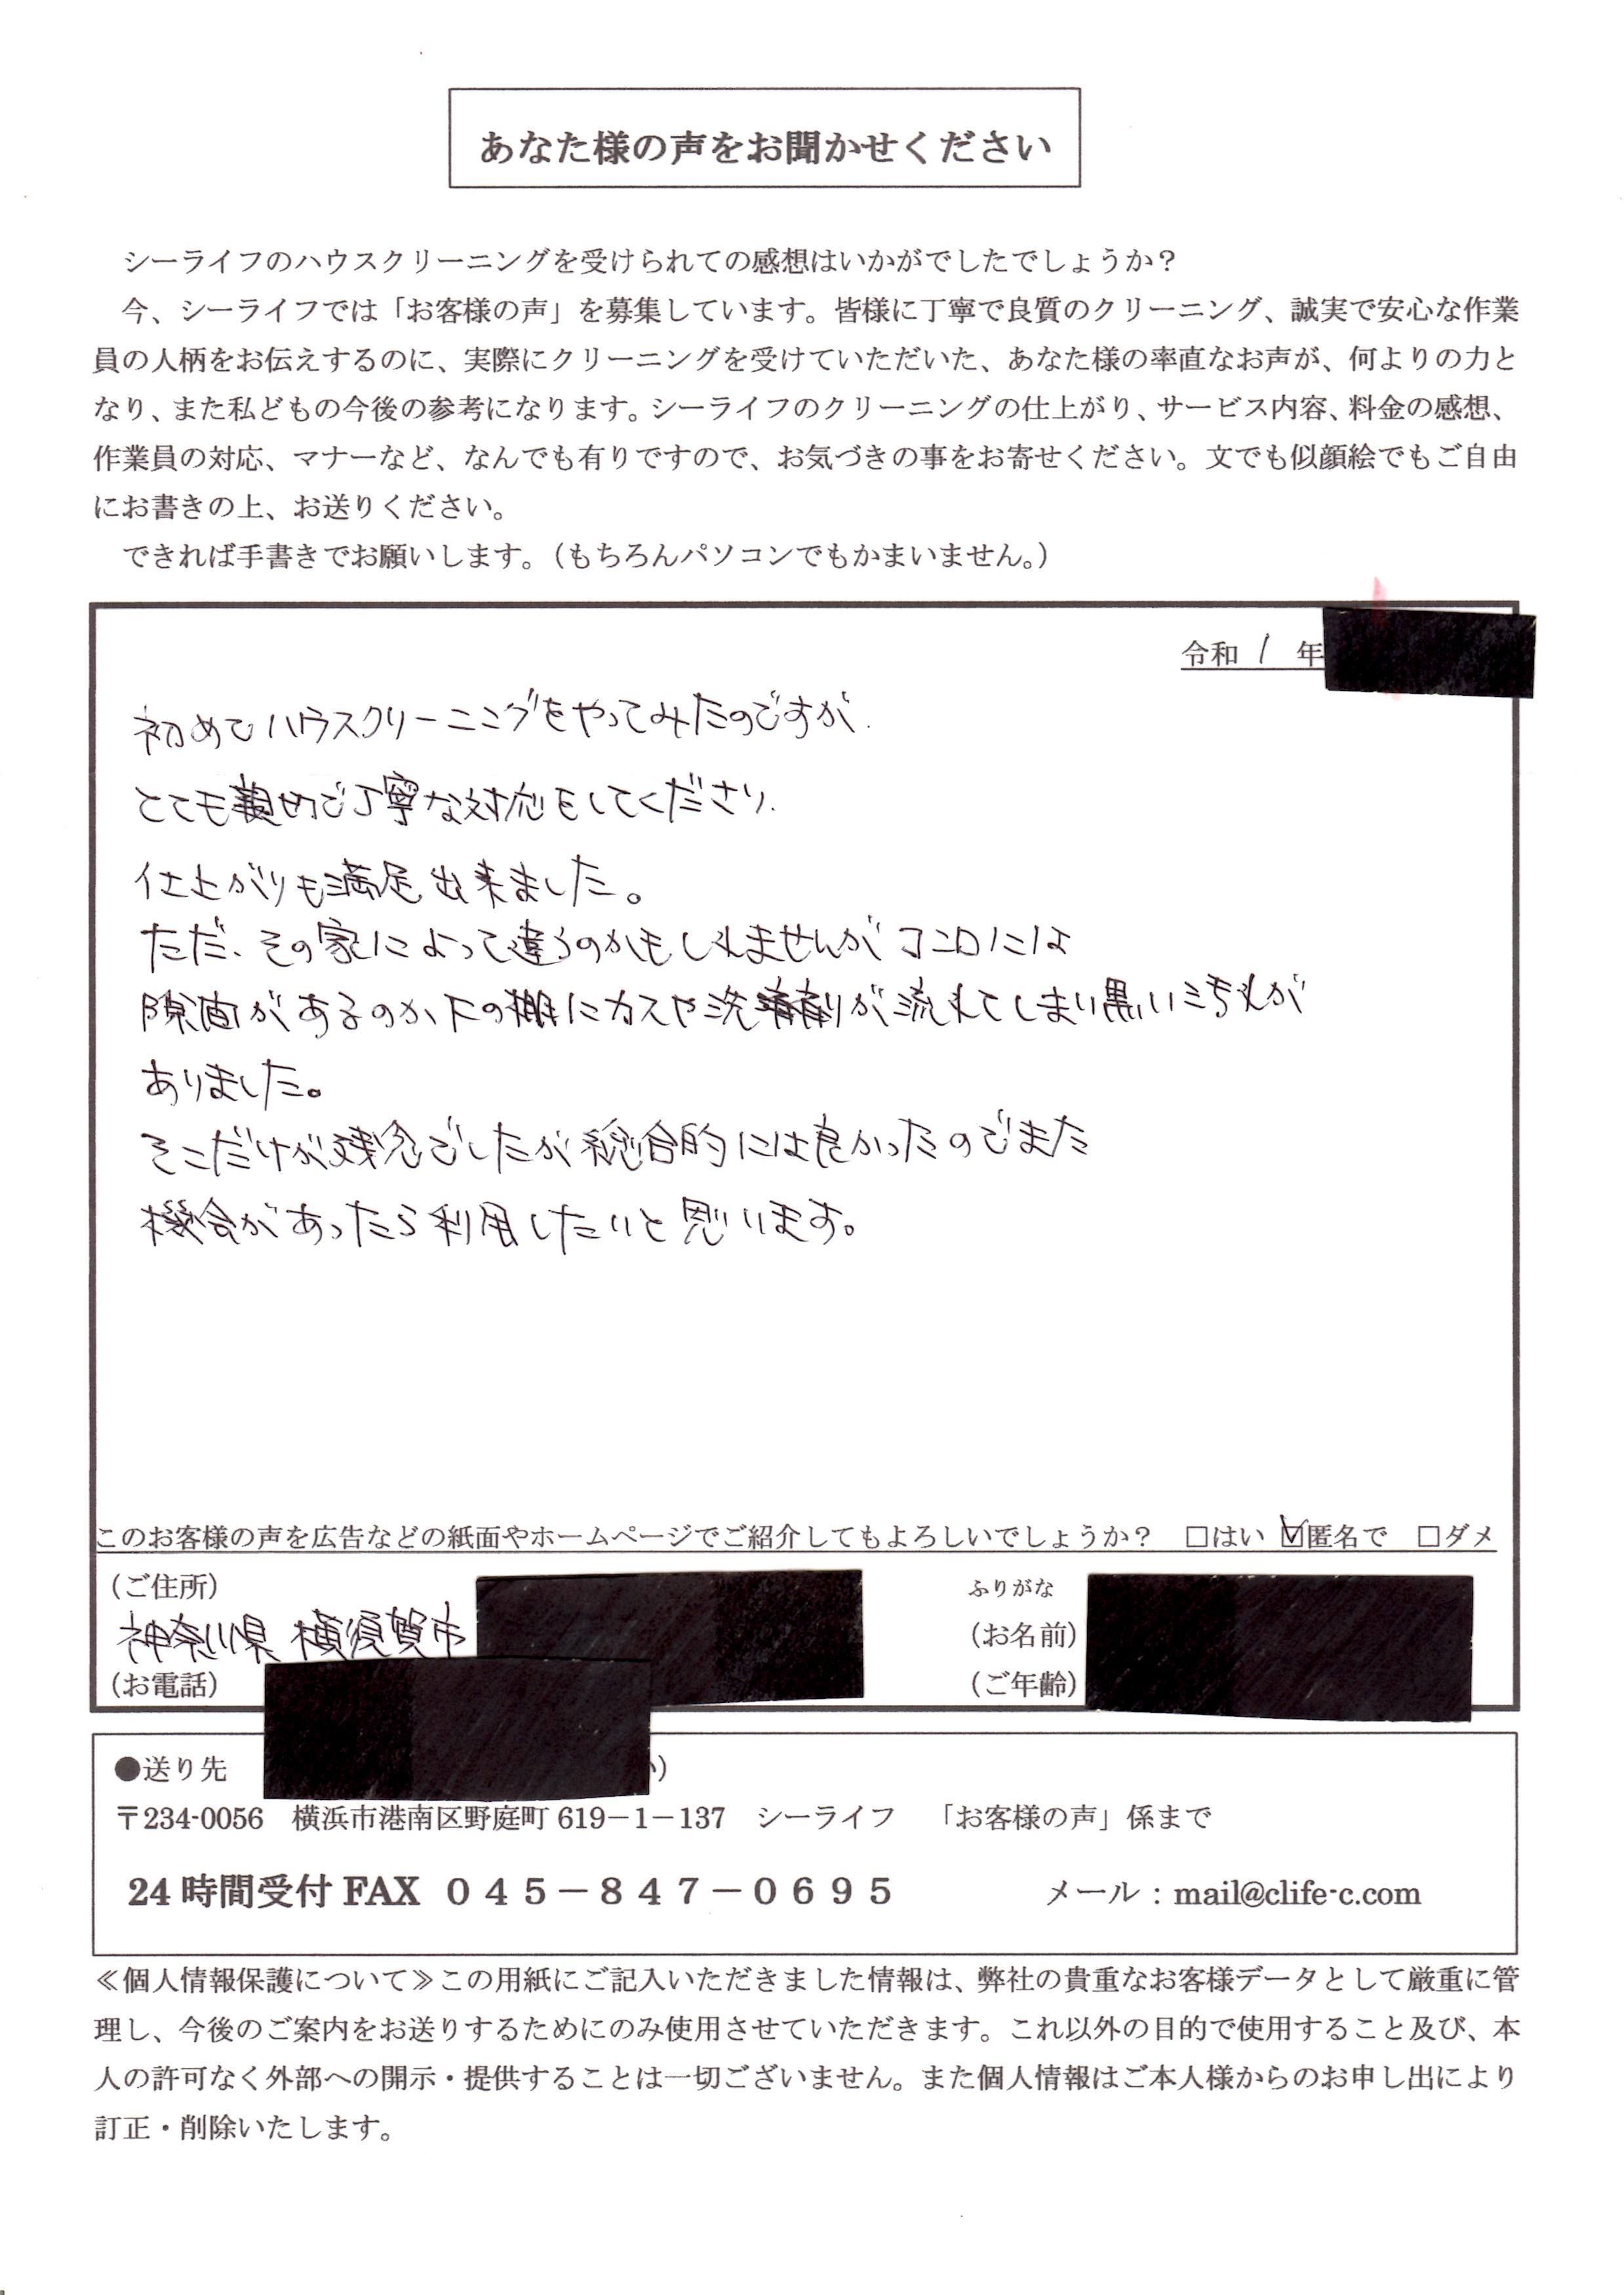 あなた様の声をお聞かせください
シーライフのハウスクリーニングを受けられての感想はいかがでしたでしょうか？
今、シーライフでは「お客様の声」を募集しています。皆様に丁寧で良質のクリーニング、誠実で安心な作業
員の人柄をお伝えするのに、実際にクリーニングを受けていただいた、あなた様の率直なお声が、何よりの力と
なり、また私どもの今後の参考になります。シーライフのクリーニングの仕上がり、サービス内容、料金の感想、
作業員の対応、マナーなど、なんでも有りですので、お気づきの事をお寄せください。文でも似顔絵でもご自由
にお書きの上、お送りください。
できれば手書きでお願いします。（もちろんパソコンでもかまいません。）
令和 1 年
初めてハウスクリーニングをやってみたのですが、
とても親切で丁寧な対応をしてくださり、
仕上がりも満足出来ました。
ただ、その家によって違うのかもしれませんがコンロには
隙間があるのか下の棚にカスや洗剤が流れてしまい黒い汚れが
ありました。
そこだけが残念でしたが総合的には良かったのでまた
機会があったら利用したいと思います。
このお客様の声を広告などの紙面やホームページでご紹介してもよろしいでしょうか？ □はい ☑匿名で □ダメ
（ご住所） ふりがな
神奈川県 横須賀市 （お名前）
（お電話） （ご年齢）
●送り先 ）
〒234-0056 横浜市港南区野庭町 619－1－137 シーライフ 「お客様の声」係まで
24 時間受付 FAX ０４５－８４７－０６９５ メール：mail@clife-c.com
≪個人情報保護について≫この用紙にご記入いただきました情報は、弊社の貴重なお客様データとして厳重に管
理し、今後のご案内をお送りするためにのみ使用させていただきます。これ以外の目的で使用すること及び、本
人の許可なく外部への開示・提供することは一切ございません。また個人情報はご本人様からのお申し出により
訂正・削除いたします。